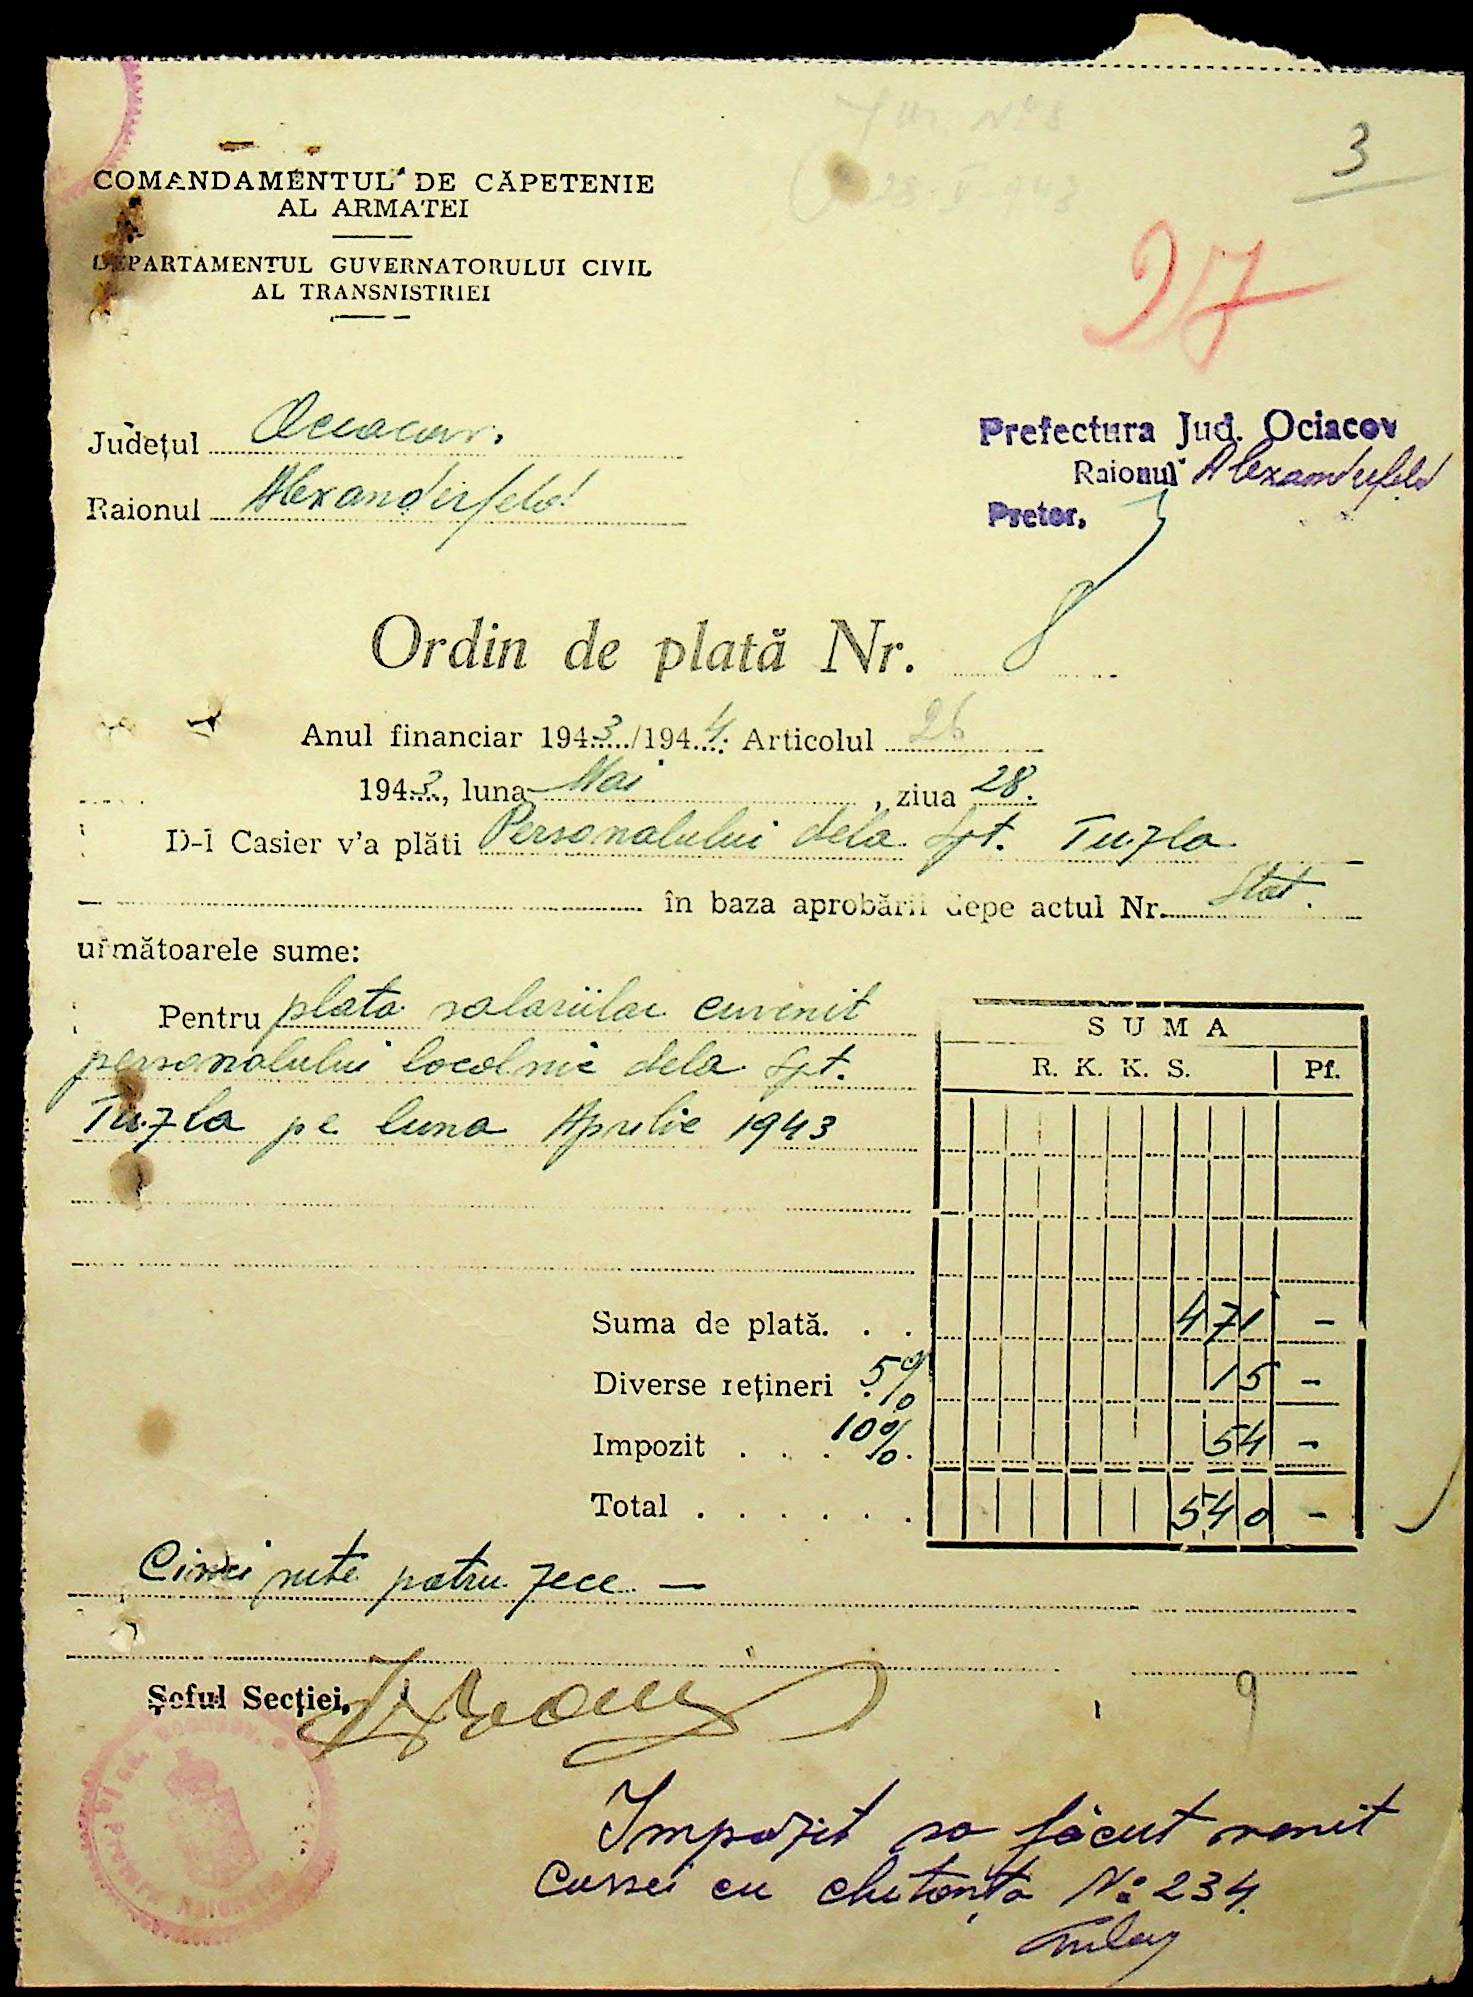 3
COMANDAMENTUL DE CĂPETENIE
AL ARMATEI
27
DEPARTAMENTUL GUVERNATORULUI CIVIL
AL TRANSNISTRIEI
Județul Oceacov.
Raionul Alexanderfeld
Prefectura Jud. Ociacov
Raionul Alexanderfeld
Pretor,
Ordin de plată Nr. 8
Anul financiar 1943/1944. Articolul 26
1943, luna Mai, ziua 28.
D-l Casier v'a plăti Personalului dela Spt. Tuzla
în baza aprobării depe actul Nr. Stat.
următoarele sume:
Pentru plata salariilor cuvenit
personalului localnic dela Spt.
Tuzla pe luna Aprilie 1943
SUMA
R. K. K. S. Pf.
Suma de plată. . . 471 -
Diverse rețineri 5% 15 -
Impozit . . . 10% 54 -
Total . . . . . . 540 -
Cinci sute patru zece —
Șeful Secției,
9
Impozit sa făcut venit
Cassei cu chitanța No 234.